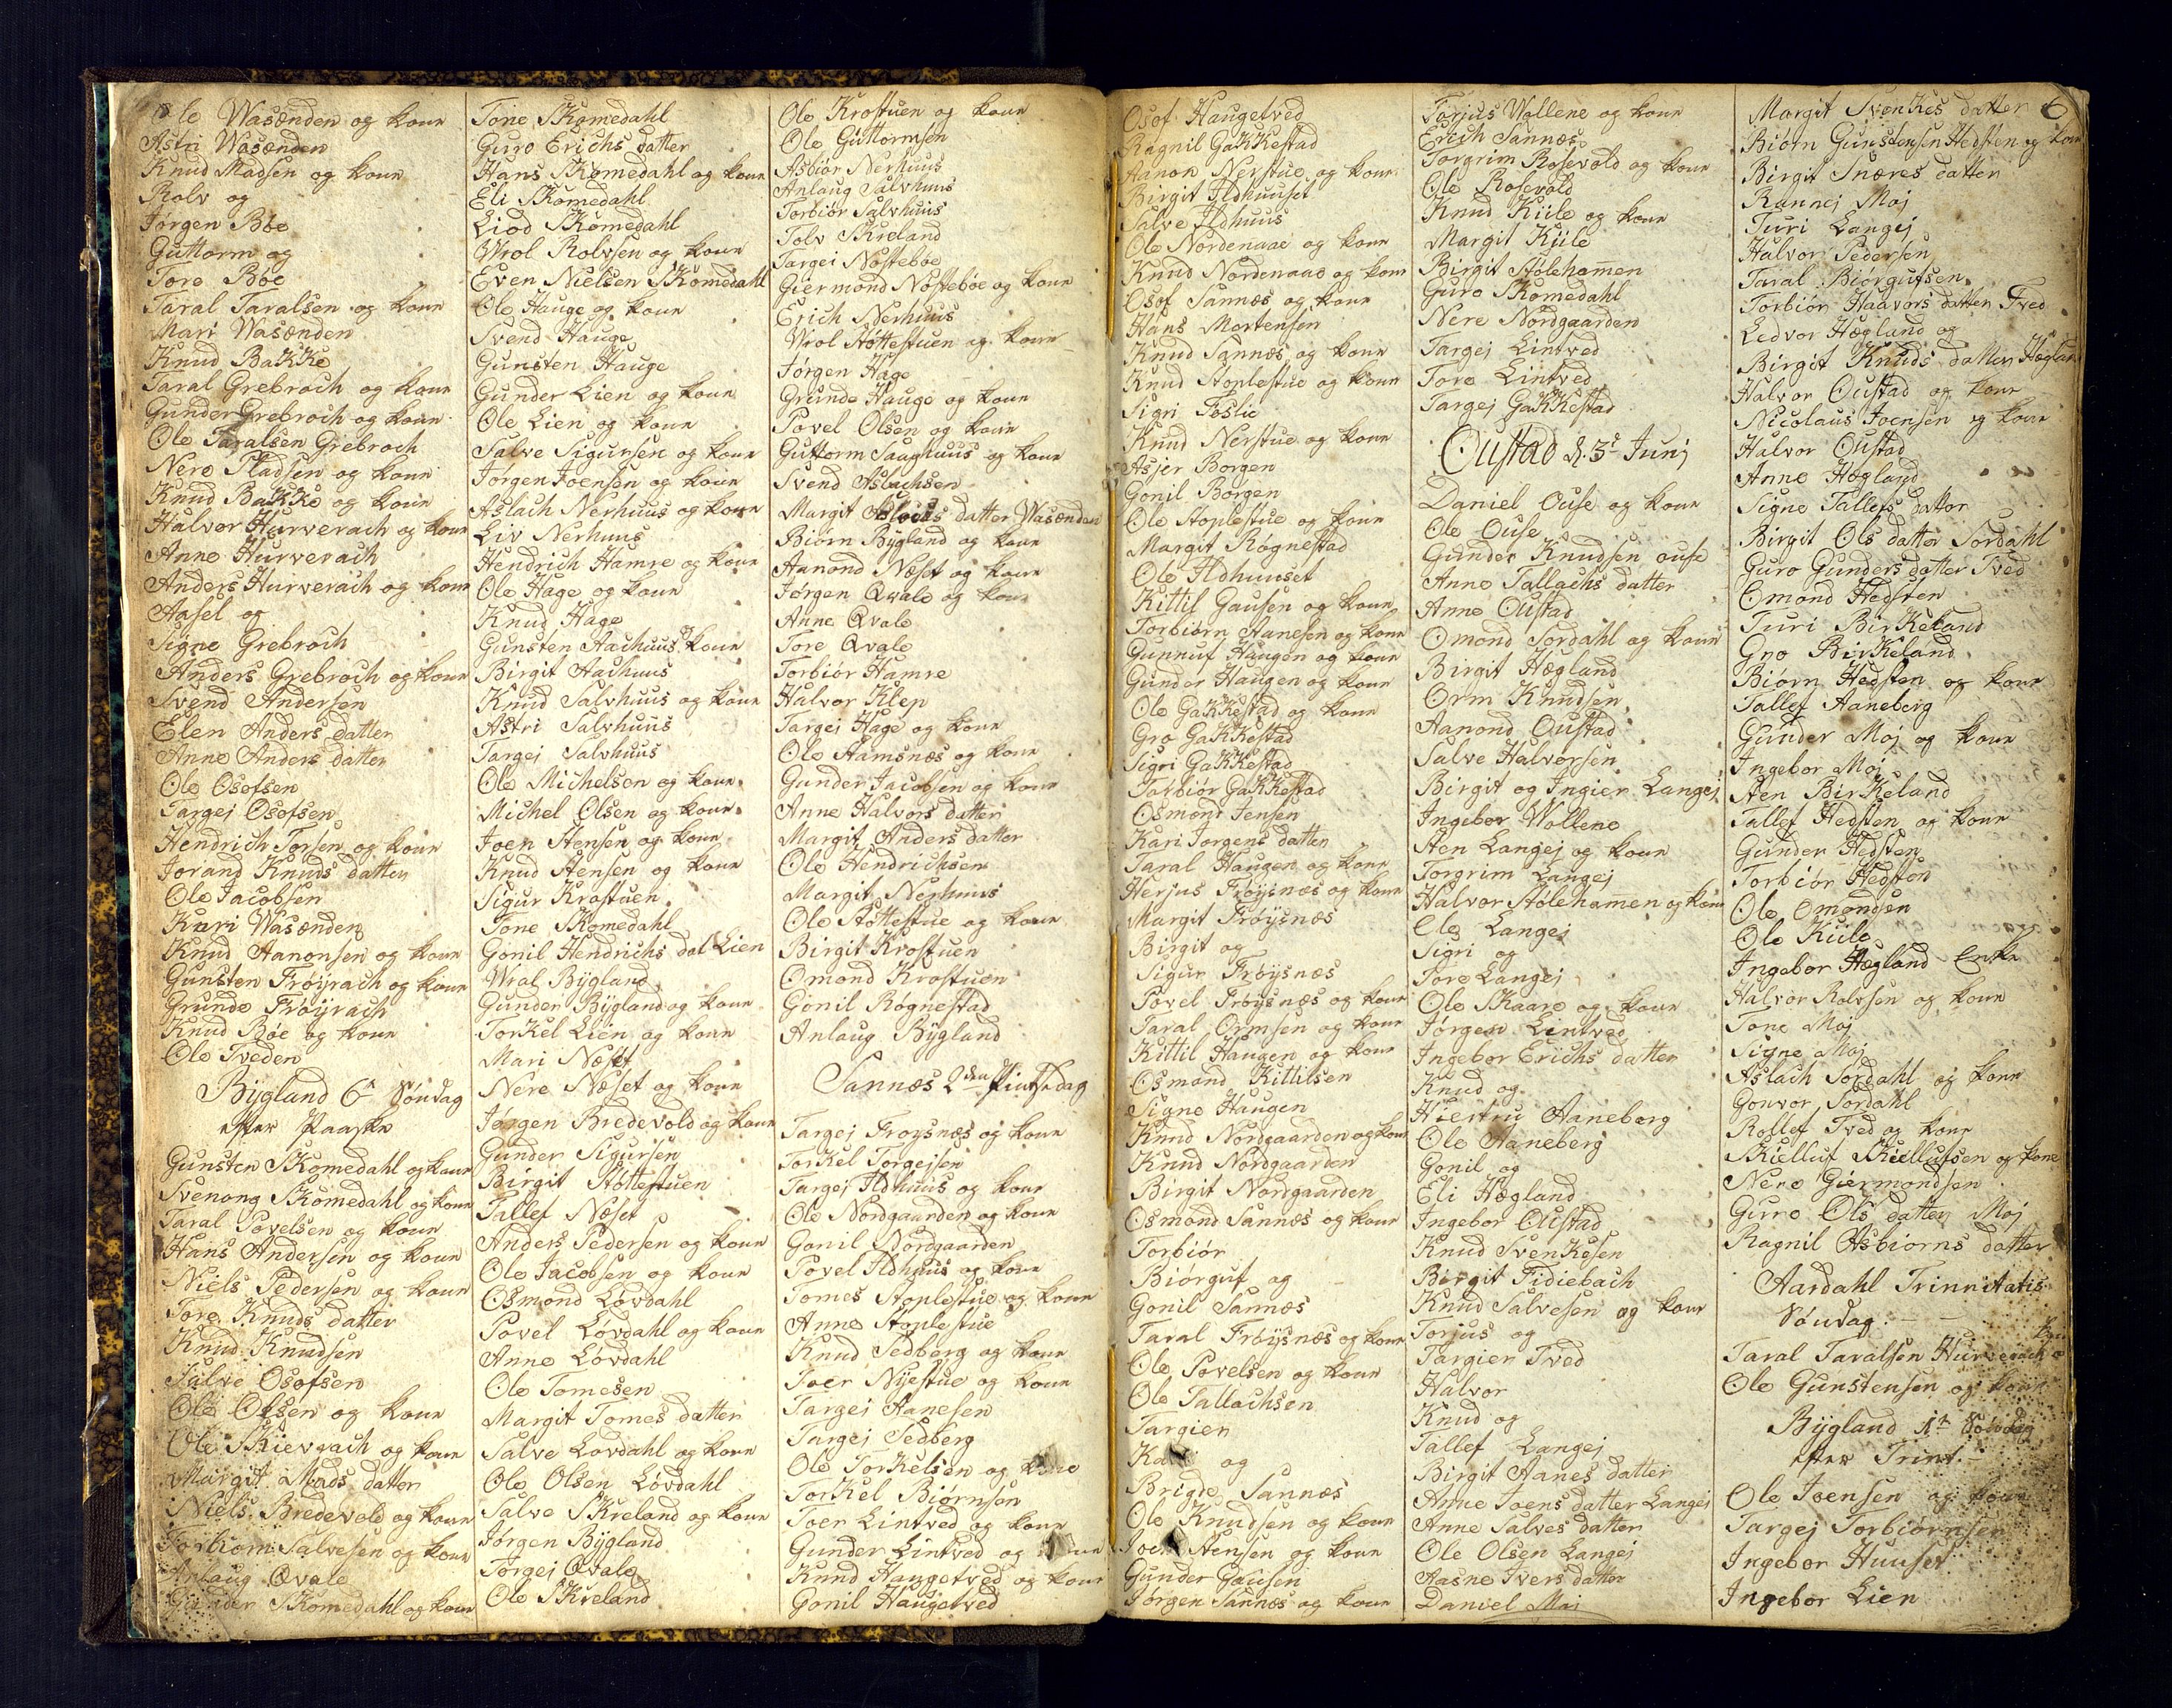 Ole Wasænden og kone
Astri Wasænden
Knud Madsen og kone
Rolv og
Jørgen Bøe
Guttorm og
Tore Bøe
Taral Taralsen og kone
Mari Wasænden
Knud Bakke
Taral Grebroch og kone
Gunder Grebroch og kone
Ole Taralsen Grebroch
Nere Pladsen og kone
Knud Bakke og kone
Halvor Hurverach og kone
Anne Hurverach
Anders Hurverach og kone
Aasel og
Signe Grebroch
Anders Grebroch og kone
Svend Andersen
Elen Anders datter
Anne Anders datter
Ole Osofsen
Targej Osofsen
Hendrich Torsen og kone
Jorand Knuds datter
Ole Jacobsen
Kari Wasænden
Knud Aanonsen og kone
Gunsten Frøyrach og kone
Grunde Frøyrach
Knud Bøe og kone
Ole Tveden
Bygland 6te Søndag
efter Paaske
Gunsten Skomedahl og kone
Svenong Skomedahl og kone
Taral Povelsen og kone
Hans Andersen og kone
Niels Pedersen og kone
Tore Knuds datter
Knud Knudsen
Salve Osofsen
Ole Olsen og kone
Ole Skievrach og kone
Margit Mads datter
Niels Bredevold og kone
Torbiørn Salvesen og kone
Anlaug Qvale
Gunder Skomedahl og kone
Tone Skomedahl
Guro Erichs datter
Hans Skomedahl og kone
Eli Skomedahl
Liod Skomedahl
Wrol Rolvsen og kone
Even Nielsen Skomedahl
Ole Hauge og kone
Svend Hauge
Gunsten Hauge
Gunder Lien og kone
Ole Lien og kone
Salve Sigursen og kone
Jørgen Joensen og kone
Aslach Nerhuus og kone
Liv Nerhuus
Hendrich Hamre og kone
Ole Hage og kone
Knud Hage
Gunsten Aachuus og kone
Birgit Aachuus
Knud Salvhuus og kone
Astri Salvhuus
Targej Salvhuus
Ole Michelsen og kone
Michel Olsen og kone
Joen Stensen og kone
Knud Stensen og kone
Sigur Krostuen
Tone Skomedahl
Gonil Hendrichs dat Lien
Wral Bygland
Gunder Bygland og kone
Torkel Lien og kone
Mari Næset
Nere Næset og kone
Jørgen Bredevold og kone
Gunder Sigursen
Birgit Støttestuen
Tallef Næset
Anders Pedersen og kone
Ole Jacobsen og kone
Osmond Løvdahl
Povel Løvdahl og kone
Anne Løvdahl
Ole Tomesen
Margit Tomes datter
Salve Løvdahl og kone
Ole Olsen Løvdahl
Salve Skreland og kone
Jørgen Bygland
Torgej Qvale
Ole Skreland
Ole Krostuen og kone
Ole Guttormsen
Asbiør Nerhuus
Anlaug Salvhuus
Torbiør Salvhuus
Tolv Skreland
Targei Nøstebøe
Giermond Nøstebøe og kone
Erich Nerhuus
Wrol Støttestuen og kone
Jørgen Hage
Grunde Hauge og kone
Povel Olsen og kone
Guttorm Saaghuus og kone
Svend Aslachsen
Margit datter Wasænden
Biørn Bygland og kone
Aanond Næset og kone
Jørgen Qvale og kone
Anne Qvale
Tore Qvale
Torbiør Hamre
Halvor Klep
Targej Hage og kone
Ole Hamsnæs og kone
Gunder Jacobsen og kone
Anne Halvors datter
Margit Anders datter
Ole Hendrichsen
Margit Nerhuus
Ole Støttestue og kone
Birgit Krostuen
Omond Krostuen
Gonil Rognestad
Anlaug Bygland
Sannæs 2den Pintsedag
Targej Frøysnæs og kone
Torkel Torgejsen
Targej Ildhuus og kone
Ole Nordgaarden og kone
Gonil Nordgaarden
Povel Ildhuus og kone
Tomes Stoplestue og kone
Anne Stoplestue
Knud Sedberg og kone
Joer Nyestue og kone
Targej Aanesen
Targej Sedberg
Ole Torkelsen og kone
Torkel Biørnsen
Joer Lintved og kone
Gunder Lintved og kone
Knud Haugetved og kone
Gonil Haugetved
Osof Haugetved
Ragnil Gakkestad
Aanon Nerstue og kone
Birgit Ildhuuset
Salve Ildhuus
Ole Nordenaae og kone
Knud Nordenaae og kone
Osof Sannæs og kone
Hans Mortensen
Knud Sannæs og kone
Knud Stoplestue og kone
Sigri Foslie
Knud Nerstue og kone
Asjer Borgen
Gonil Borgen
Ole Stoplestue og kone
Margit Rognestad
Ole Ildhuuset
Kittil Gausen og kone
Torbiørn Aanesen og kone
Gunnuf Haugen og kone
Gunder Haugen og kone
Ole Gakkestad og kone
Gro Gakkestad
Sigri Gakkestad
Torbiør Gakkestad
Osmond Jensen
Kari Jørgens datter
Taral Haugen og kone
Herjus Frøysnæs og kone
Margit Frøysnæs
Birgit og
Sigur Frøysnæs
Povel Frøysnæs og kone
Taral Ormsen og kone
Kittil Haugen og kone
Osmond Kittilsen
Signe Haugen
Knud Nordgaarden og kone
Knud Nordgaarden
Birgit Nordgaarden
Osmond Sannæs og kone
Torbiør
Biørguf og
Gonil Sannæs
Taral Frøysnæs og kone
Ole Povelsen og kone
Ole Tallachsen
Targier
og
Brigde Sannæs
Ole Knudsen og kone
Joen Stensen og kone
Gunder Gausen
Jørgen Sannæs og kone
Torjus Wollene og kone
Erich Sannæs
Torgrim Rosevold og kone
Ole Rosevold
Knud Kiile og kone
Margit Kiile
Birgit Stølehamen
Guro Skomedahl
Nere Nordgaarden
Targej Lintved
Tore Lintved
Targej Gakkestad
Oustad d. 3e Junj
Daniel Ouse og kone
Ole Ouse
Gunder Knudsen ouse
Anne Tallachs datter
Anne Oustad
Omond Sordahl og kone
Birgit Hægland
Orm Knudsen
Aanond Oustad
Salve Halvorsen
Birgit og Ingier Langej
Ingebor Wollene
Sten Langej og kone
Torgrim Langej
Halvor Stølehamen og kone
Ole Langej
Sigri og
Tore Langej
Ole Skaare og kone
Jørgen Lintved
Ingebor Erichs datter
Knud og
Hiertru Aaneberg
Ole Aaneberg
Gonil og
Eli Hægland
Ingebor Oustad
Knud Svenkesen
Birgit Fidiebach
Knud Salvesen og kone
Torjus og
Targier Tved
Halvor
Knud og
Tallef Langej
Birgit Aanes datter
Anne Joens datter Langej
Anne Salves datter
Ole Olsen Langej
Aasne Ivers datter
Daniel Moj
Margit Svenkes datter 6
Biørn Gunstensen Hedsten og kone
Birgit Snæres datter
Rannej Moj
Turi Langej
Halvor Pedersen
Taral Biørgufsen
Torbiør Haavors datter Tved
Ledvor Hægland og
Birgit Knuds datter Hægland
Halvor Oustad og kone
Nicolaus Joensen og kone
Halvor Oustad
Anne Hægland
Signe Tallefs datter
Birgit Ols datter Sordahl
Guro Gunders datter Tved
Omond Hedsten
Turi Birkeland
Gro Birkeland
Biørn Hedsten og kone
Tallef Aaneberg
Gunder Moj og kone
Ingebor Moj
Sten Birkeland
Tallef Hedsten og kone
Gunder Hedsten
Torbiør Hedsten
Ole Omondsen
Ole Kiile
Ingebor Hægland Enke
Halvor Rolvsen og kone
Tone Moj
Signe Moj
Aslach Sordahl og kone
Gonvor Sordahl
Rollef Tved og kone
Skielluf Skiellufsen og kone
Nere Giermondsen
Guro Ols datter Moj
Ragnil Asbiorns datter
Aardahl Trinnitatis
Søndag
Taral Taralsen Hurverach
Ole Gunstensen og kone
Bygland 1te Søndag
efter Trinit.
Ole Joensen og kone
Targej Torbiørnsen
Ingebor Huuset
Ingebor Lien